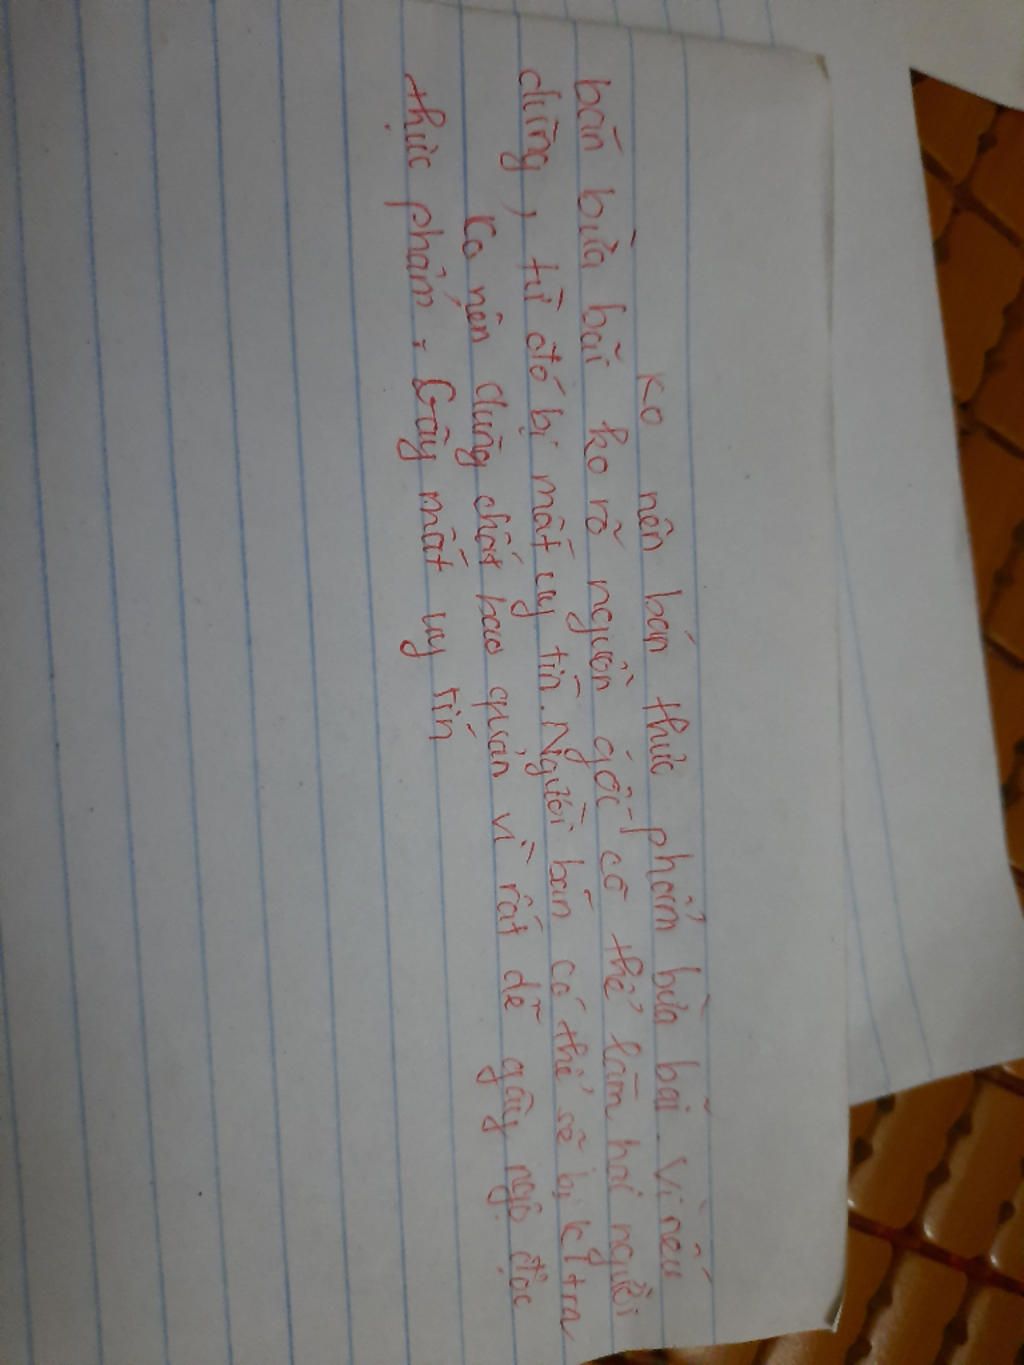 ko nên bán thức phẩm bừa bãi. Vì nếu
bán bừa bãi ko rõ nguồn gốc có thể làm hại người
dùng, từ đó bị mất uy tín. Người bán có thể sẽ bị ktra
Ko nên dùng chất bảo quản vì rất dễ gây ngộ độc
thực phẩm. Gây mất uy tín